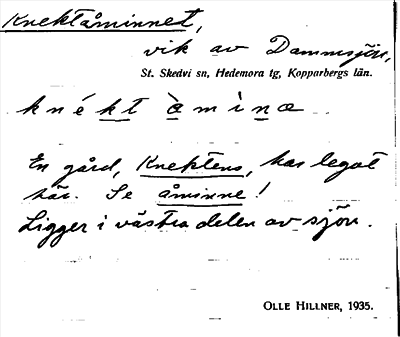 Knektåminnet,
vik av Dammsjön,
St. Skedvi sn, Hedemora tg, Kopparbergs län.
knékt àmìnæ
En gård, Knektens, har legat
här. Se åminne!
Ligger i västra delen av sjön.
OLLE HILLNER, 1935.